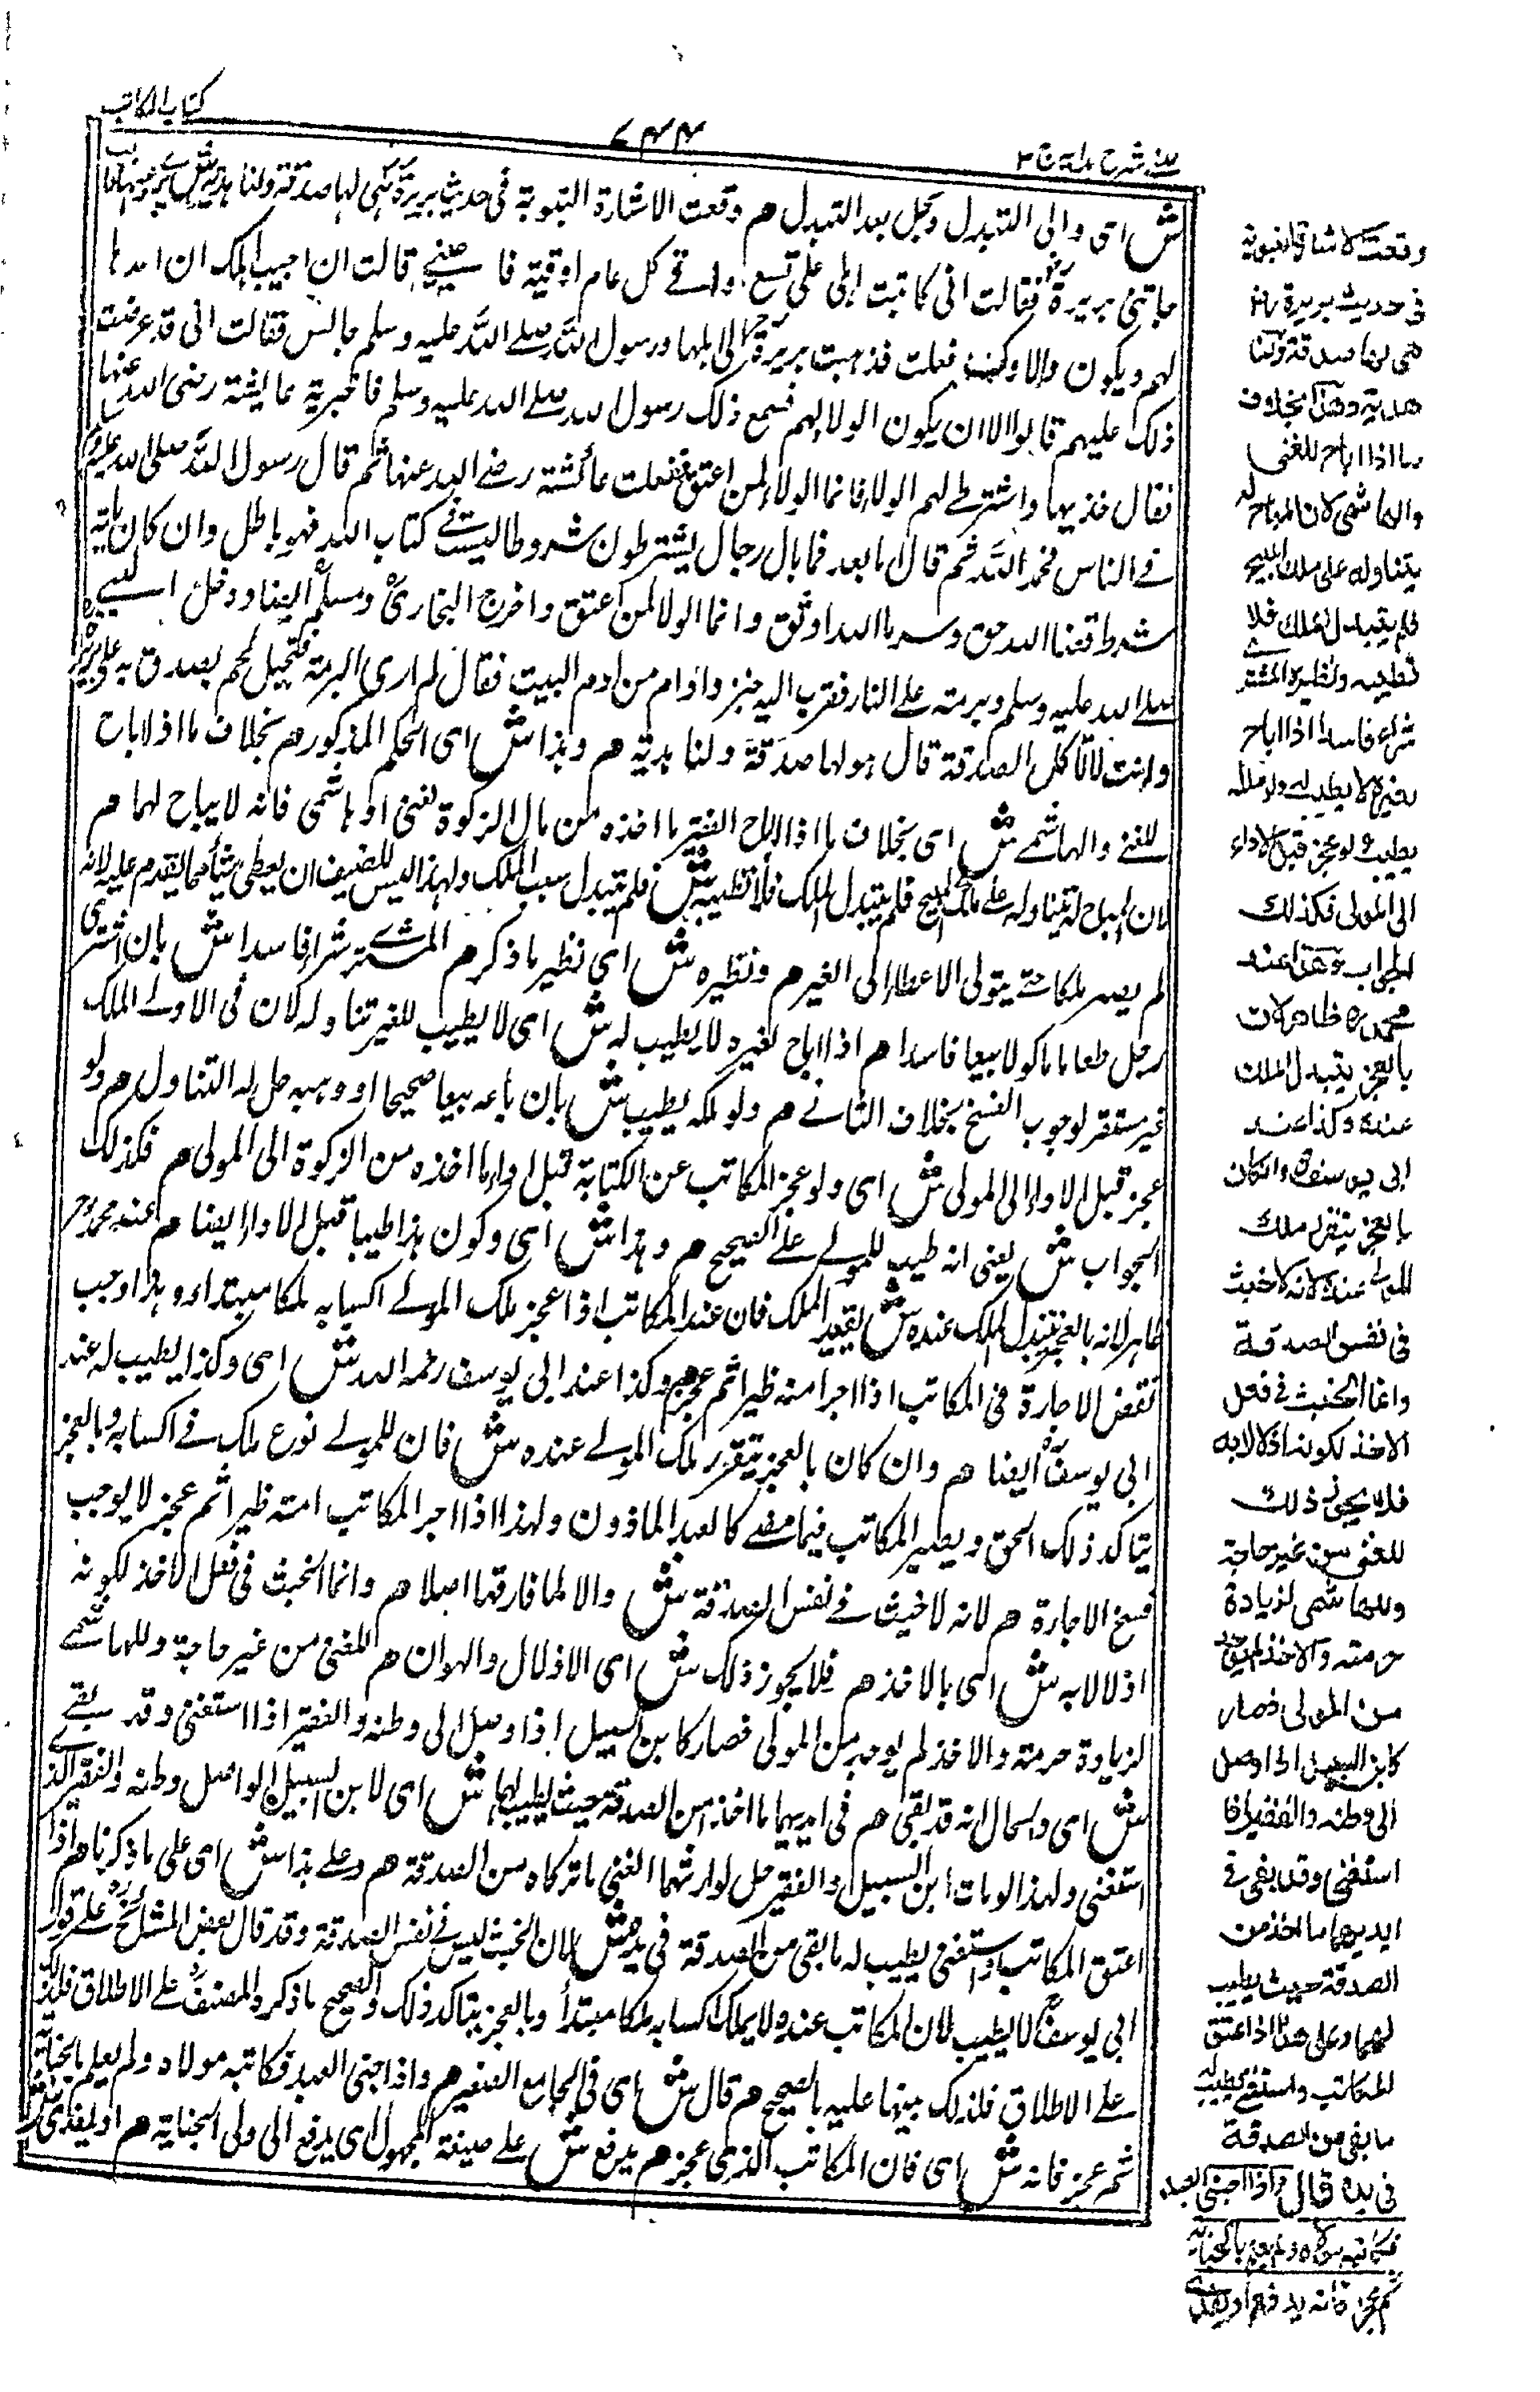 كتاب المكاتب
٧٤٤
عيني شرح هداية ج ٣
ش اى والى التبدل وكل بعد التبدل هم وقعت الاشارة النبوية فى حديث بريرة رض هى لها صدقة ولنا هدية ش
جاءتنى بريرة رض فقالت انى كاتبت اهلى على تسع اواق فى كل عام اوقية فاعينينى قالت ان احب اهلك ان اعدها
لهم ويكون ولاؤك لى فعلت فذهبت بريرة الى اهلها ورسول الله صلى الله عليه وسلم جالس فقالت انى قد عرضت
ذلك عليهم فابوا الا ان يكون الولاء لهم فسمع ذلك رسول الله صلى الله عليه وسلم فاخبرته عايشة رضى الله عنها
فقال خذيها واشترطى لهم الولاء فانما الولاء لمن اعتق ففعلت عائشة رضى الله عنها ثم قال رسول الله صلى الله عليه وسلم
فى الناس فحمد الله ثم قال اما بعد فما بال رجال يشترطون شروطا ليست فى كتاب الله فهو باطل وان كان مائة
شرط قضاء الله حق وشرط الله اوثق وانما الولاء لمن اعتق واخرج البخارى ومسلم ايضا ودخل النبى
صلى الله عليه وسلم وبرمة على النار فقرب اليه خبز وادام من ادم البيت فقال لم ارى البرمة فقيل لحم تصدق به على بريرة
وانت لا تأكل الصدقة قال هو لها صدقة ولنا هدية هم وهذا ش اى الحكم المذكور هم بخلاف ما اذا اباح
للغنى والهاشمى ش اى بخلاف ما اذا اباح الفقير ما اخذه من مال الزكوة لغنى او هاشمى فانه لا يباح لهما هم
لان المباح له يتناوله على ملك المبيح فلم يتبدل الملك فلا تطيبه ش فلم يتبدل سبب الملك ولهذا ليس للضيف ان يعطى شيأ مما يقدم عليه لانه
لم يصر ملكا حتى يتولى الاعطاء الى الغير هم ونظيره ش اى نظير ما ذكر هم المشترى شراء فاسدا ش بان اشترى
رجل طعاما ماكولا بيعا فاسدا هم اذا اباح لغيره لا يطيب له ش اى لا يطيب للغير تناوله لان فى الاول الملك
غير مستقر لوجوب الفسخ بخلاف الثانى هم ولو ملكه يطيب ش بان باعه بيعا صحيحا او وهبه حل له التناول هم ولو
عجز قبل الاداء الى المولى ش اى ولو عجز المكاتب عن الكتابة قبل اداء ما اخذه من الزكوة الى المولى هم فكذلك
الجواب ش يعنى انه طيب للمولى على الصحيح هم وهذا ش اى وكون هذا طيبا قبل الاداء ايضا هم عند محمد رح
ظاهر لانه بالعجز يتبدل الملك عنده ش لتعدد الملك فان عند المكاتب اذا عجز ملك المولى اكسابه ملكا مبتداء وهذا اوجب
نقض الاجارة فى المكاتب اذا اجر امته ظيرا ثم عجز هم وكذا عند ابى يوسف رحمه الله ش اى وكذا يطيب له عند
ابى يوسف ايضا هم وان كان بالعجز يتقرر ملك المولى عنده ش فان للمولى نوع ملك فى اكسابه وبالعجز
يتاكد ذلك الحق ويصير المكاتب فيما مضى كالعبد الماذون ولهذا اذا اجر المكاتب امته ظيرا ثم عجز لا يوجب
فسخ الاجارة هم لانه لا خبث فى نفس الصدقة ش والا لما فارقها اصلا هم وانما الخبث فى فعل الاخذ لكونه
اذلالا به ش اى بالاخذ هم فلا يجوز ذلك ش اى الاذلال والهوان هم للغنى من غير حاجة وللهاشمى
لزيادة حرمته والاخذ لم يوجد من المولى فصار كابن السبيل اذا وصل الى وطنه والفقير اذا استغنى وقد بقى
ش اى والحال انه قد بقى هم فى ايديهما ما اخذا من الصدقة حيث يطيب لهما ش اى لابن السبيل الواصل وطنه والفقير الذى
استغنى ولهذا لو مات ابن السبيل والفقير حل لوارثهما الغنى ما تركاه من الصدقة هم وعلى هذا ش اى على ما ذكرنا هم اذا
اعتق المكاتب واستغنى يطيب له ما بقى من الصدقة فى يده ش لان الخبث ليس فى نفس الصدقة وقد قال بعض المشائخ على قول
ابى يوسف لا يطيب لان المكاتب عنده لا يملك اكسابه ملكا مبتدأ وبالعجز يتاكد ذلك والصحيح ما ذكره المصنف على الاطلاق فلذلك
على الاطلاق فلذلك نبهنا عليه بالصحيح هم قال ش اى فى الجامع الصغير هم واذا جنى العبد فكاتبه مولاه ولم يعلم بالجناية
ثم عجز فانه ش اى فان المكاتب الذى عجز هم يدفع ش على صيغة المجهول اى يدفع الى ولى الجناية هم او يفدى
وقعت الاشارة النبوية
فى حديث بريرة رض
هى لها صدقة ولنا
هدية وهذا بخلاف
ما اذا اباح للغنى
والهاشمى لان المباح له
يتناوله على ملك المبيح
فلم يتبدل الملك فلا
تطيبه ونظيره المشترى
شراء فاسدا اذا اباح
لغيره لا يطيب له ولو ملكه
يطيب ولو عجز قبل الاداء
الى المولى فكذلك
الجواب وهذا عند
محمد ره ظاهر لان
بالعجز يتبدل الملك
عنده وكذا عند
ابى يوسف ره وان كان
بالعجز يتقرر ملك
المولى عنده لانه لا خبث
فى نفس الصدقة
وانما الخبث فى فعل
الاخذ لكونه اذلالا به
فلا يجوز ذلك
للغنى من غير حاجة
وللهاشمى لزيادة
حرمته والاخذ لم يوجد
من المولى فصار
كابن السبيل اذا وصل
الى وطنه والفقير اذا
استغنى وقد بقى فى
ايديهما ما اخذا من
الصدقة حيث يطيب
لهما وعلى هذا اذا اعتق
المكاتب واستغنى يطيب له
ما بقى من الصدقة
فى يده قال واذا جنى العبد
فكاتبه مولاه ولم يعلم بالجناية
ثم عجز فانه يدفع او يفدى